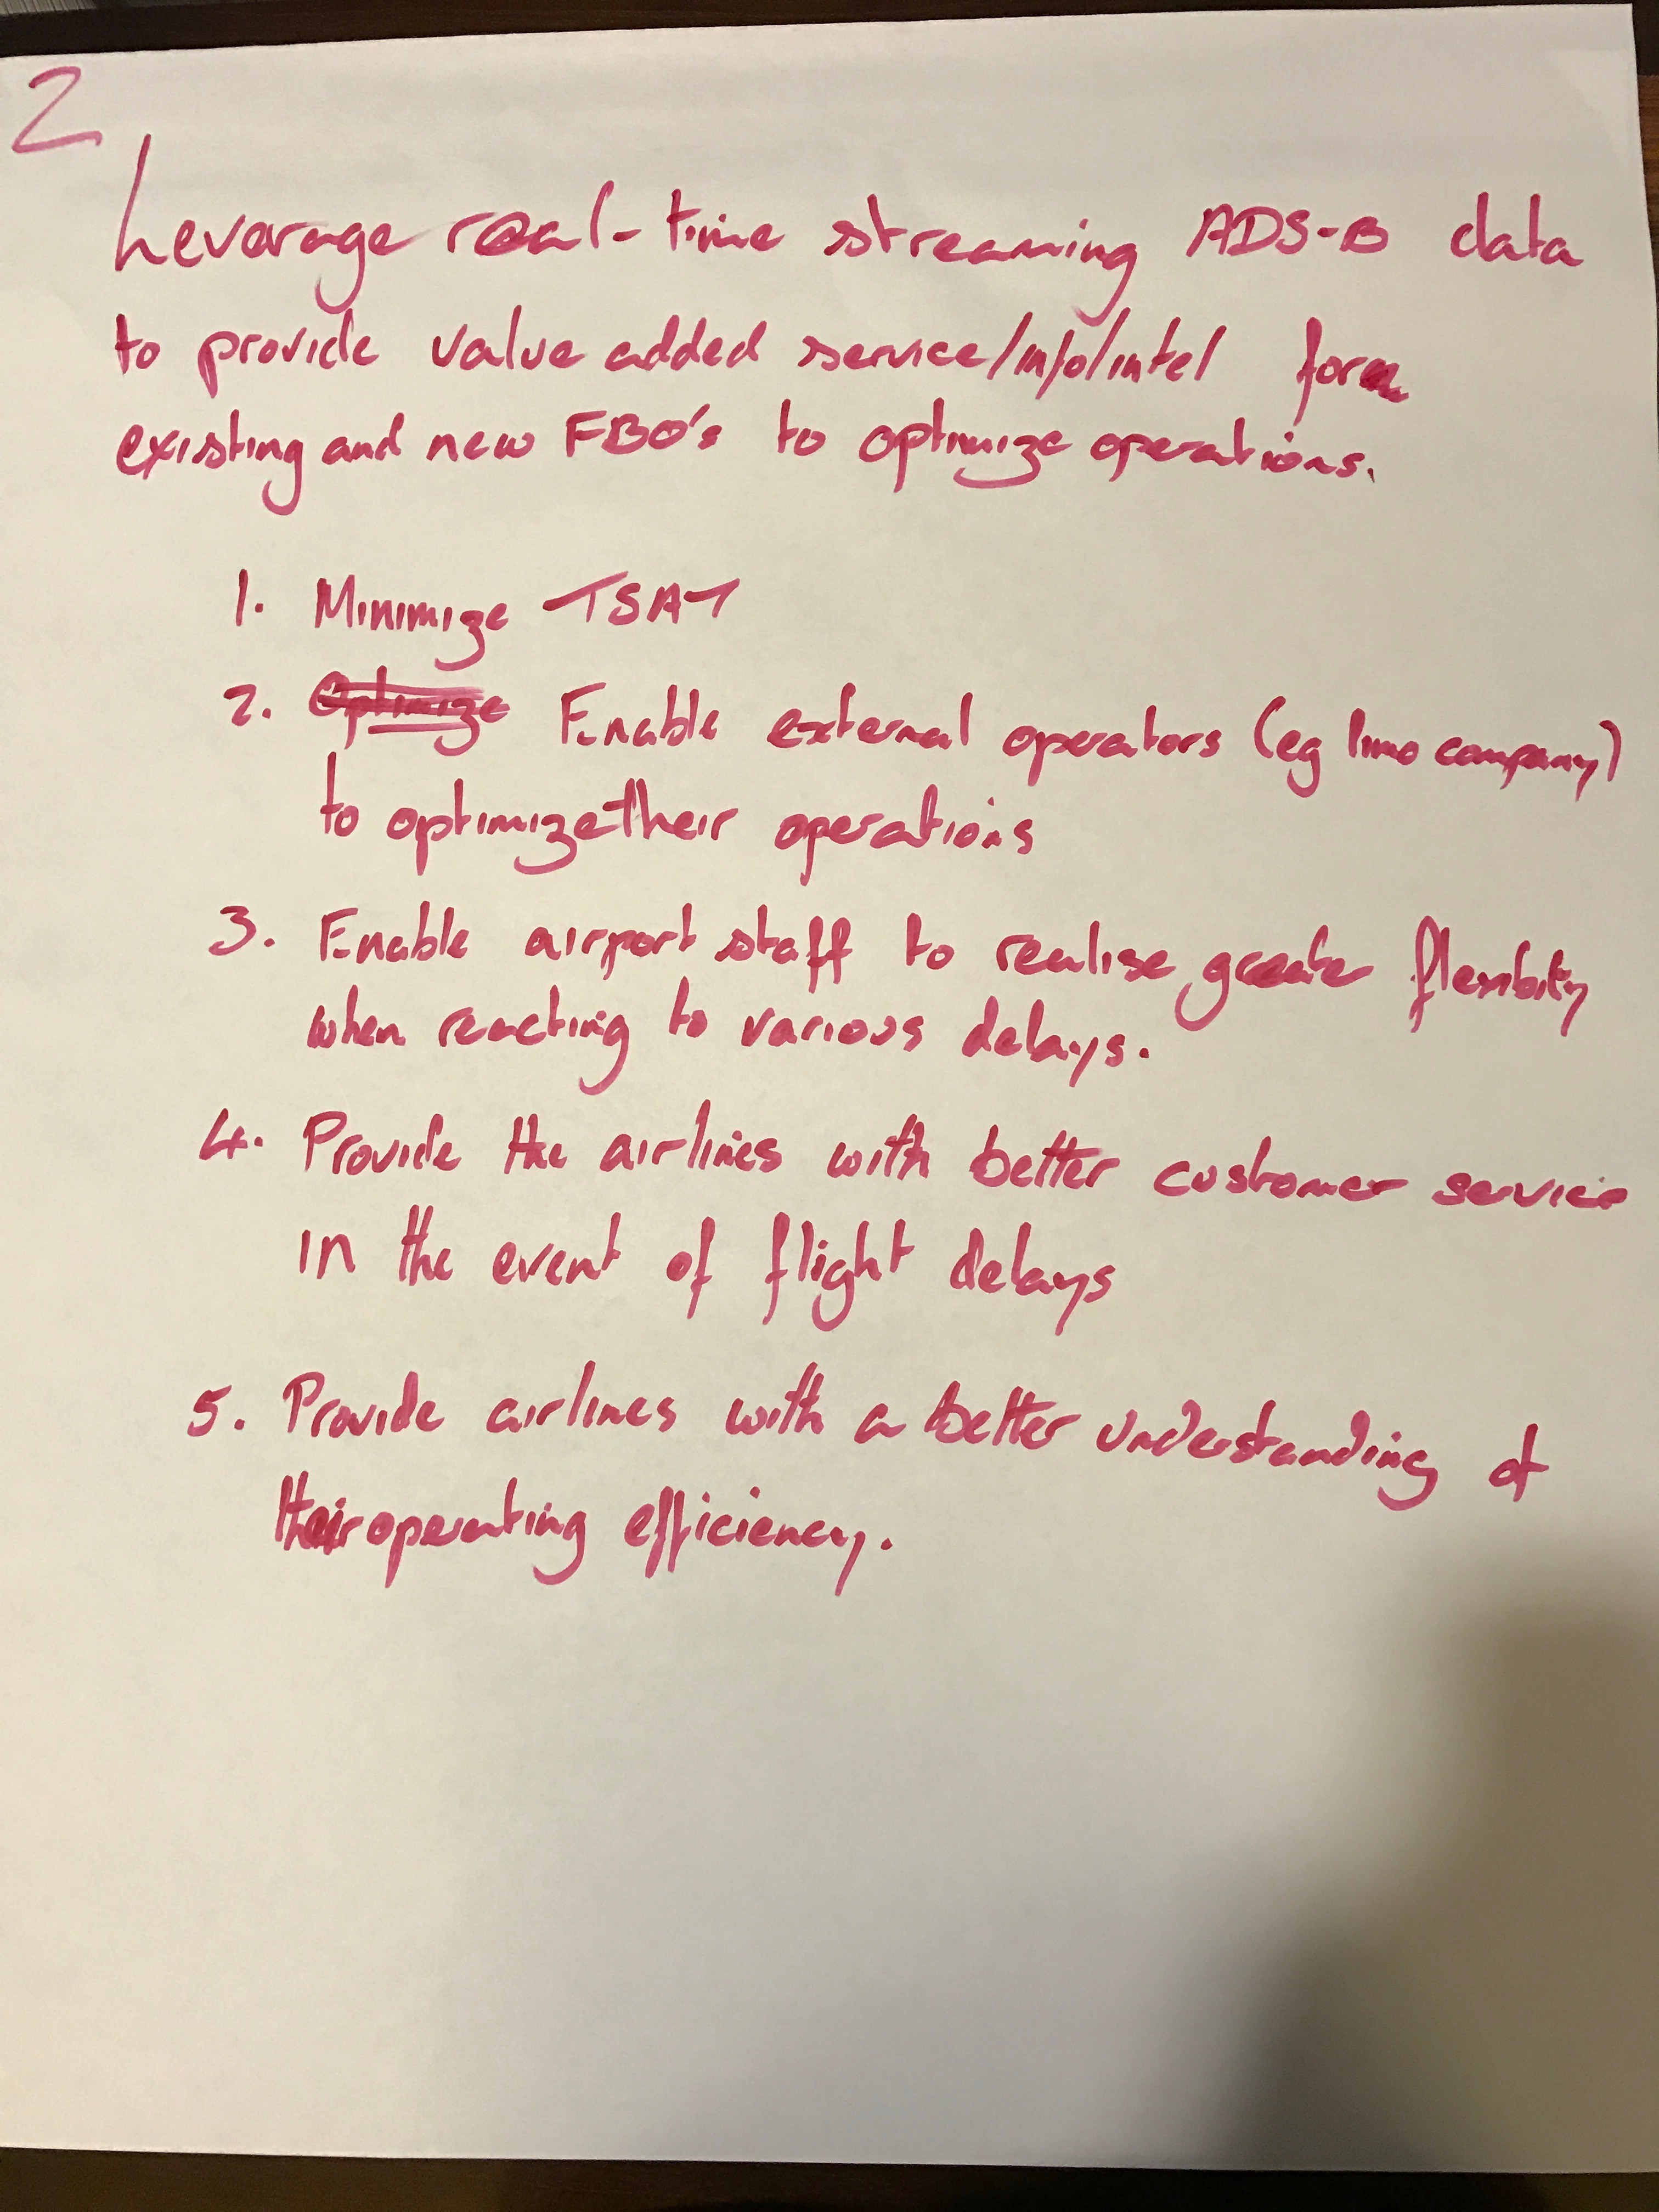 2
Leverage real-time streaming ADS-B data
to provide value added service/info/intel for
existing and new FBO's to optimize operations.
1. Minimize TSAT
2. Optimize Enable external operators (eg limo company)
to optimize their operations
3. Enable airport staff to realise greater flexibility
when reacting to various delays.
4. Provide the airlines with better customer service
in the event of flight delays
5. Provide airlines with a better understanding of
their operating efficiency.